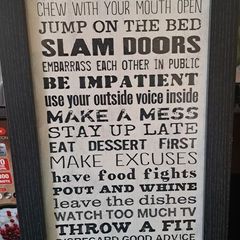 CHEW WITH YOUR MOUTH OPEN
JUMP ON THE BED
SLAM DOORS
EMBARRASS EACH OTHER IN PUBLIC
BE IMPATIENT
use your outside voice inside
MAKE A MESS
STAY UP LATE
EAT DESSERT FIRST
MAKE EXCUSES
have food fights
POUT AND WHINE
leave the dishes
WATCH TOO MUCH TV
THROW A FIT
DISREGARD GOOD ADVICE